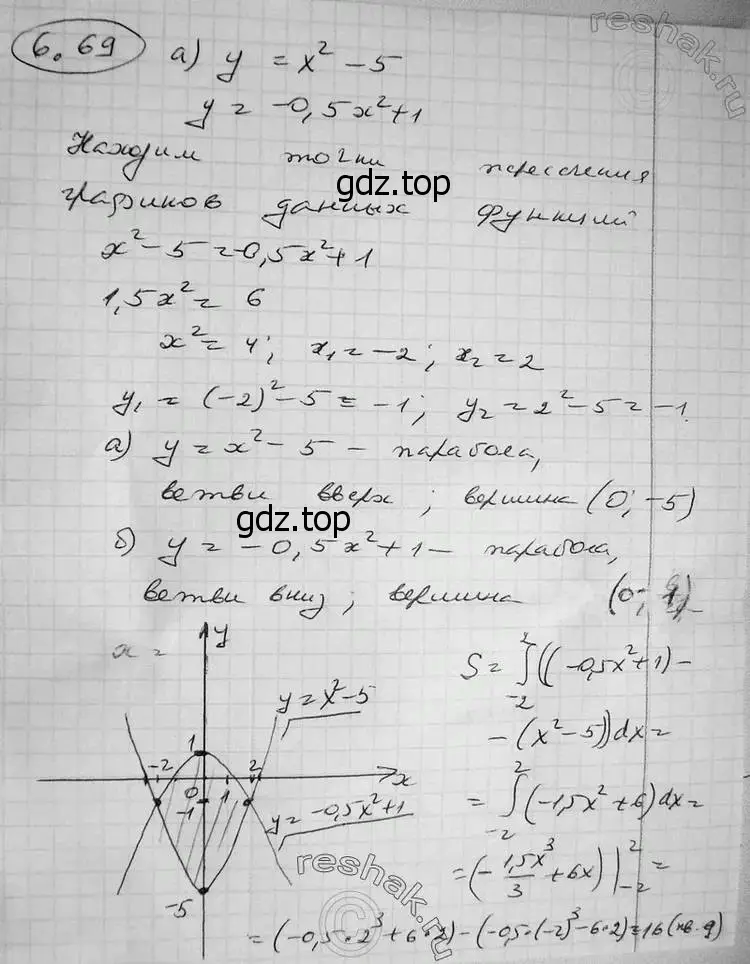 6.69 а) y = x² - 5
y = -0,5x²+1
Находим точки пересечения
gdz.top
графиков данных функций
x² - 5 = -0,5x²+1
1,5x² = 6
x² = 4; x₁ = -2; x₂ = 2
y₁ = (-2)² - 5 = -1; y₂ = 2² - 5 = -1.
а) y = x² - 5 - парабола,
ветви вверх; вершина (0; -5)
gdz.top
б) y = -0,5x²+1 - парабола,
ветви вниз; вершина (0; 1)
x =
y
S = ∫₋₂² ((-0,5x²+1) -
y = x² - 5
- (x² - 5))dx =
1
-2
2
x
0
-1
1
= ∫₋₂² (-1,5x² + 6)dx =
y = -0,5x²+1
= (- 1,5x³/3 + 6x) |₋₂² =
-5
= (-0,5 · 2³ + 6 · 2) - (-0,5 · (-2)³ - 6 · 2) = 16 (кв. д)
reshak.ru
reshak.ru